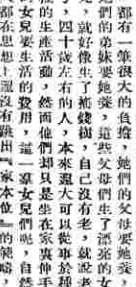 都有一筆很大的負擔，她們的父母要她養，
們的弟妹要她養，這些父母們生了漂亮的女
，就好像生了搖錢樹，自己沒有老，就說老
，四十歲左右的人，本來還大可以從事於種
的生產活動，然而他們却只是坐在家裏伸手
女兒要生活的費用，這一羣女兒們呢，自然
都在思想上還沒有跳出『家本位』的範疇，